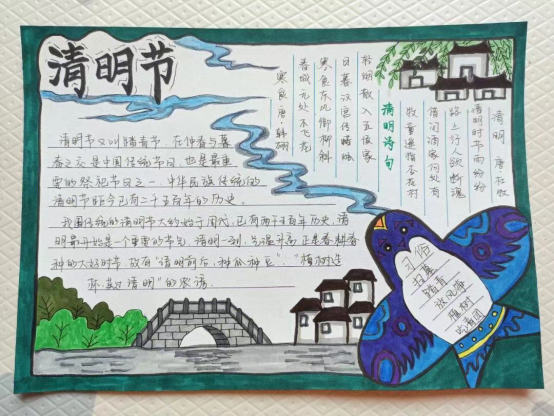 清明节
清明节又叫踏青节,在仲春与暮
春之交,是中国传统节日,也是最重
要的祭祀节日之一,中华民族传统的
清明节距今已有二千五百年的历史。
我国传统的清明节大约始于周代,已有两千五百年历史,清
明最开始是一个重要的节气,清明一到,气温升高,正是春耕春
种的大好时节,故有“清明前后,种瓜种豆”、“植树造
林,莫过清明”的农谚。
清明诗句
清明 唐·杜牧
清明时节雨纷纷
路上行人欲断魂
借问酒家何处有
牧童遥指杏花村
寒食 唐·韩翃
春城无处不飞花
寒食东风御柳斜
日暮汉宫传蜡烛
轻烟散入五侯家
习俗
扫墓
踏青
放风筝
植树
吃青团